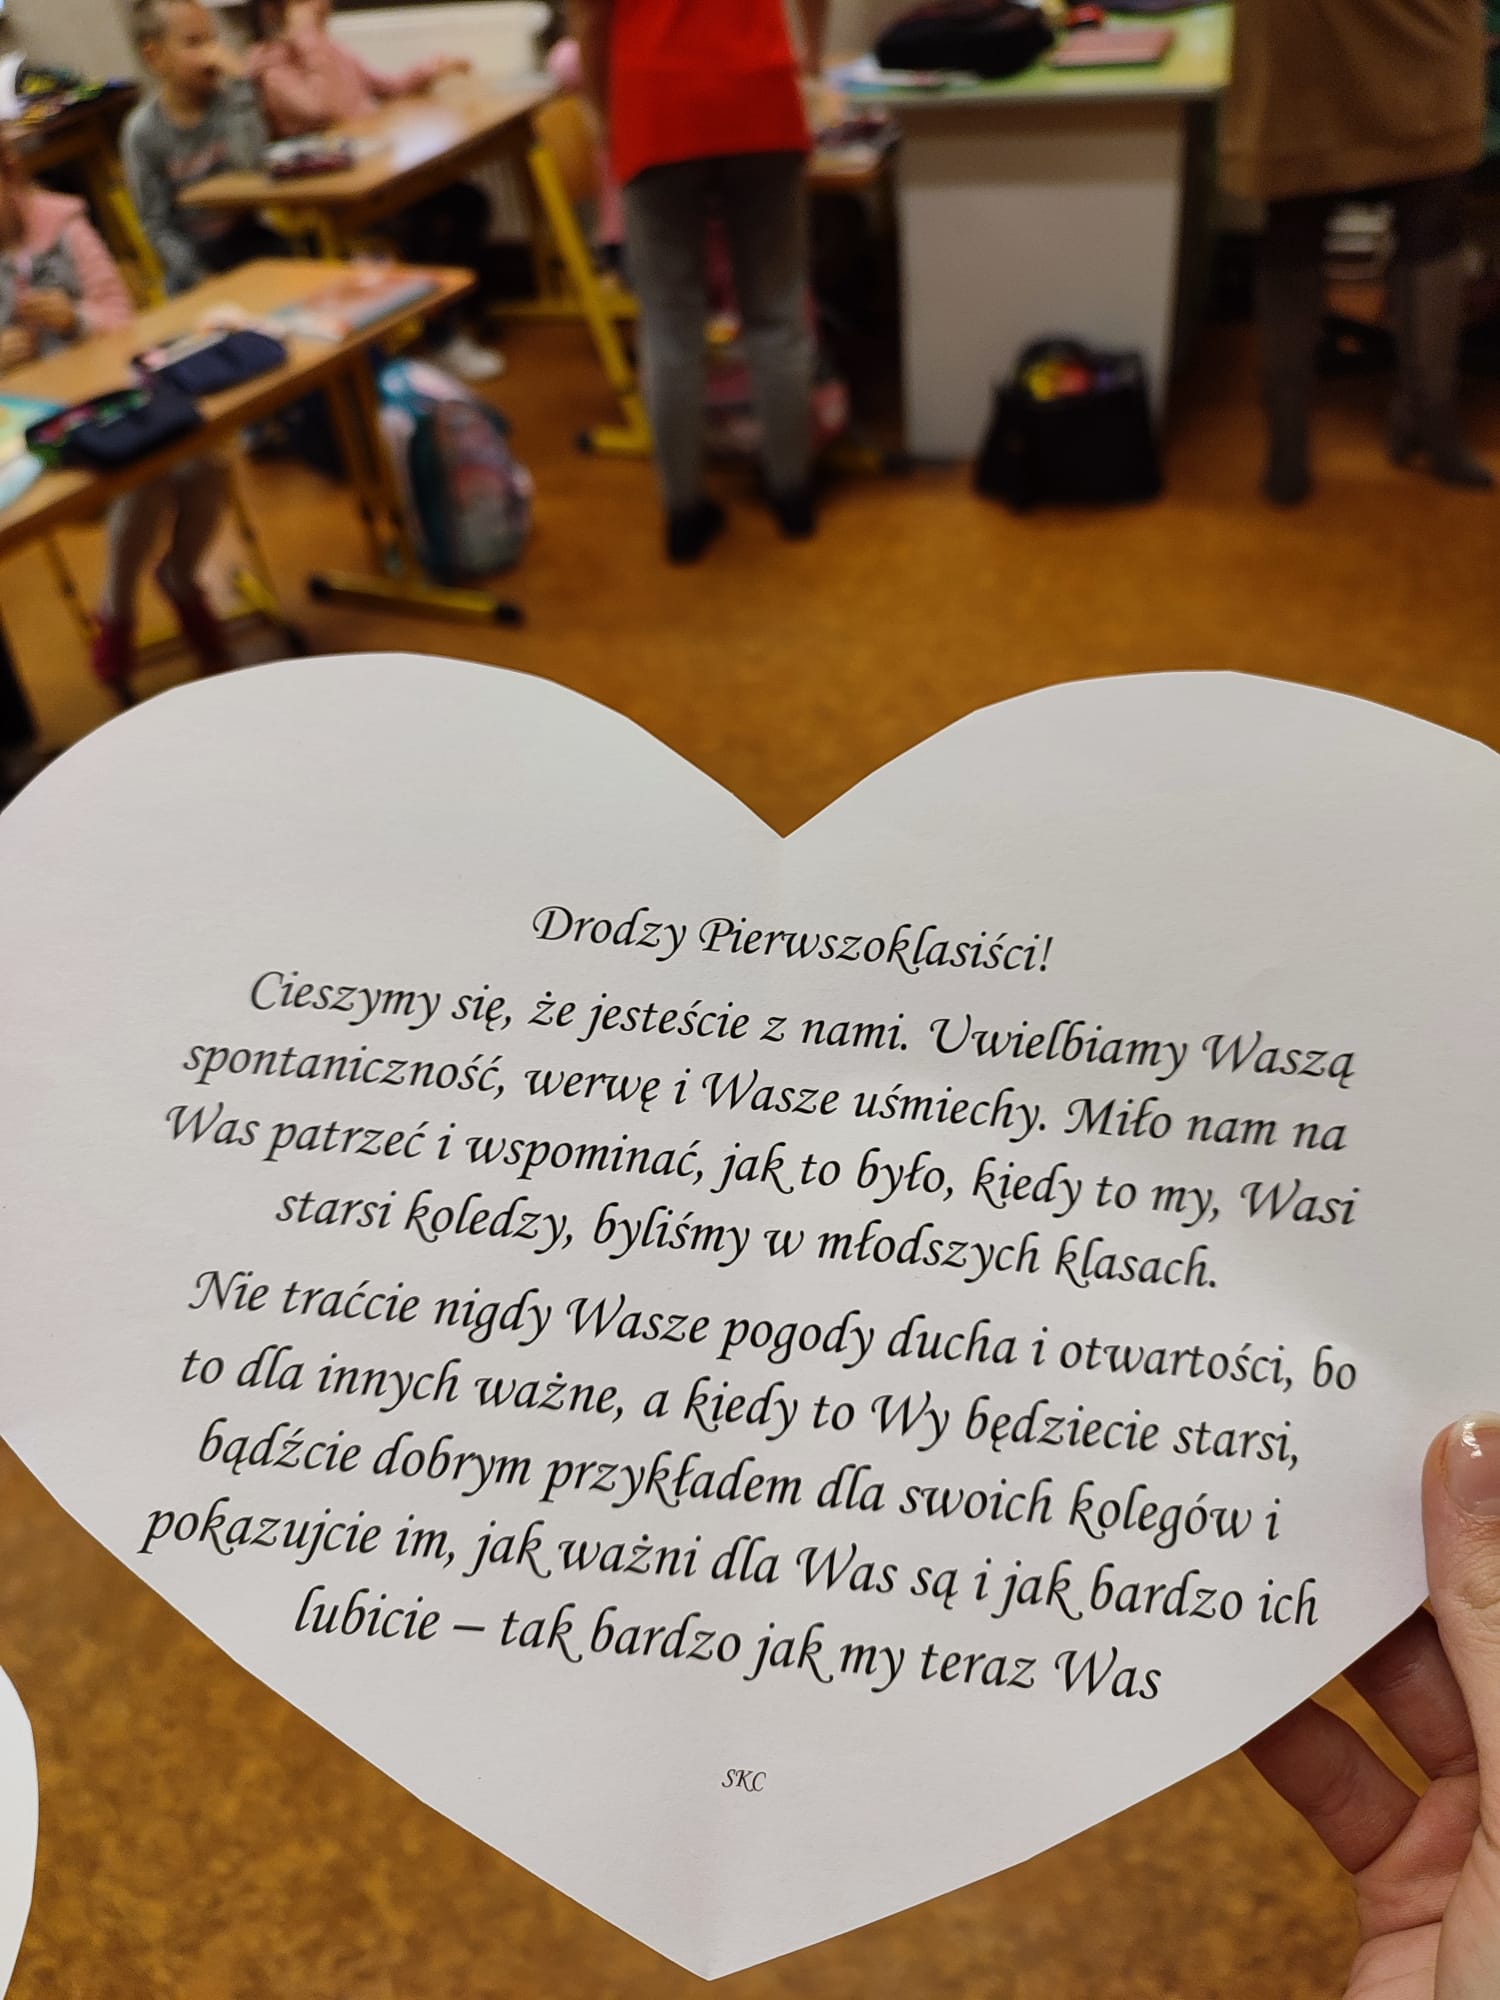 Drodzy Pierwszoklasiści!
Cieszymy się, że jesteście z nami. Uwielbiamy Waszą
spontaniczność, werwę i Wasze uśmiechy. Miło nam na
Was patrzeć i wspominać, jak to było, kiedy to my, Wasi
starsi koledzy, byliśmy w młodszych klasach.
Nie traćcie nigdy Wasze pogody ducha i otwartości, bo
to dla innych ważne, a kiedy to Wy będziecie starsi,
bądźcie dobrym przykładem dla swoich kolegów i
pokazujcie im, jak ważni dla Was są i jak bardzo ich
lubicie – tak bardzo jak my teraz Was
SKC